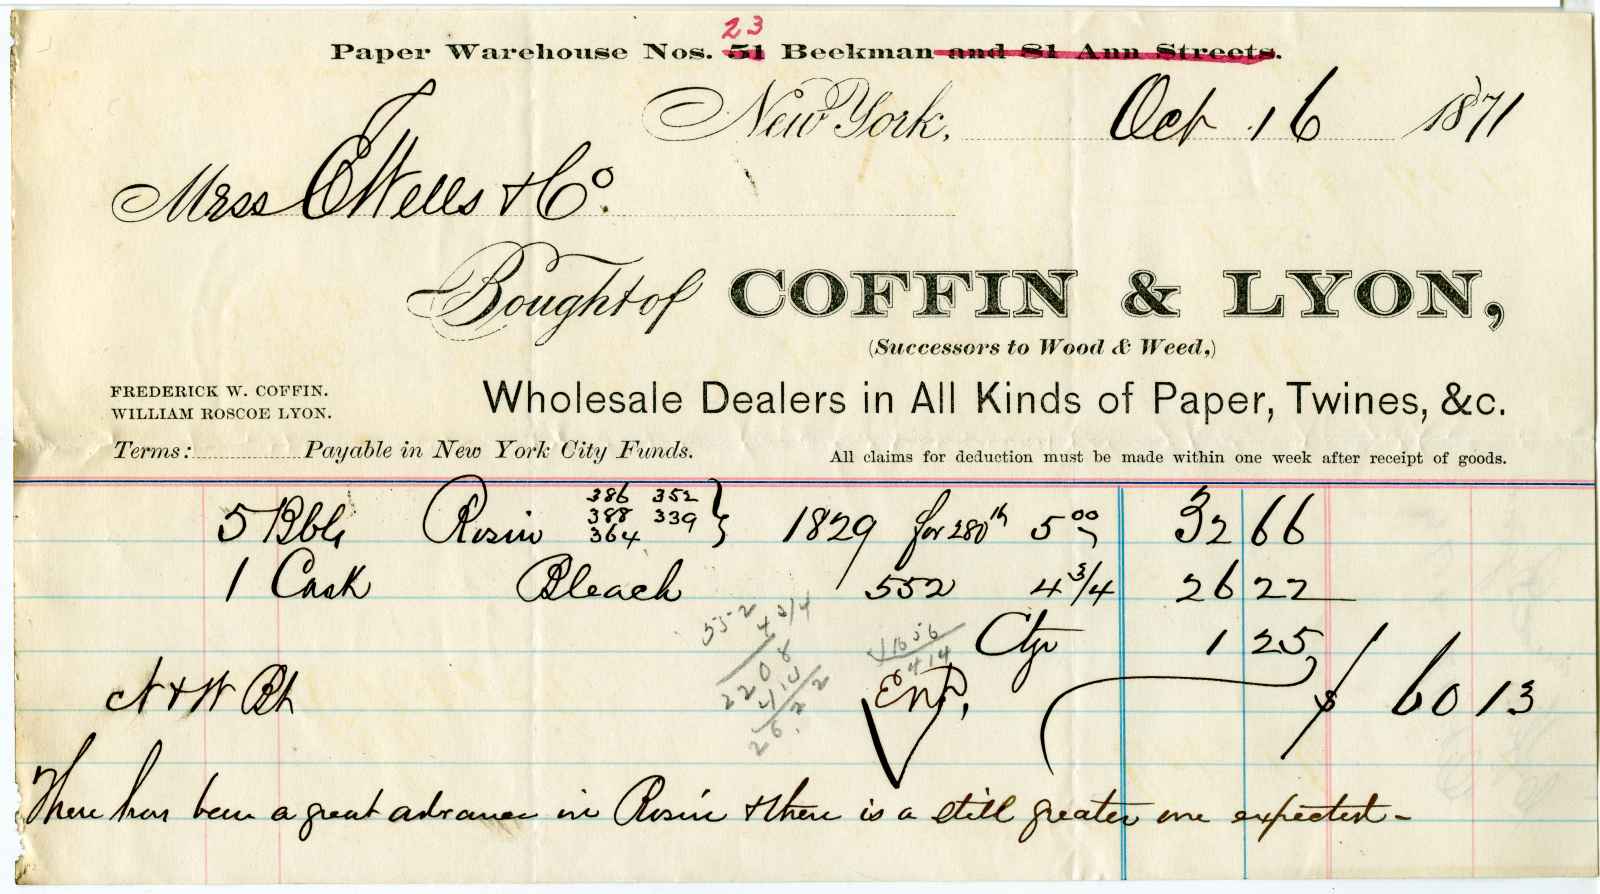 23
Paper Warehouse Nos. 51 Beekman and 81 Ann Streets.
New York, Oct 16 1871
Mrss E Wells & Co.
Bought of COFFIN & LYON,
(Successors to Wood & Weed,)
FREDERICK W. COFFIN.
WILLIAM ROSCOE LYON.
Wholesale Dealers in All Kinds of Paper, Twines, &c.
Terms: Payable in New York City Funds.
All claims for deduction must be made within one week after receipt of goods.
5 Bbls Rosin 386 352 388 339 364 } 1829 for 280 lb 5 00 32 66
1 Cask Bleach 552 4 3/4 26 22
Ctge 1 25
552
4 3/4
2208
414
26.22
1656
414
N & W Bt
Entd,
$ 60 13
There has been a great advance in Rosin & there is a still greater one expected -